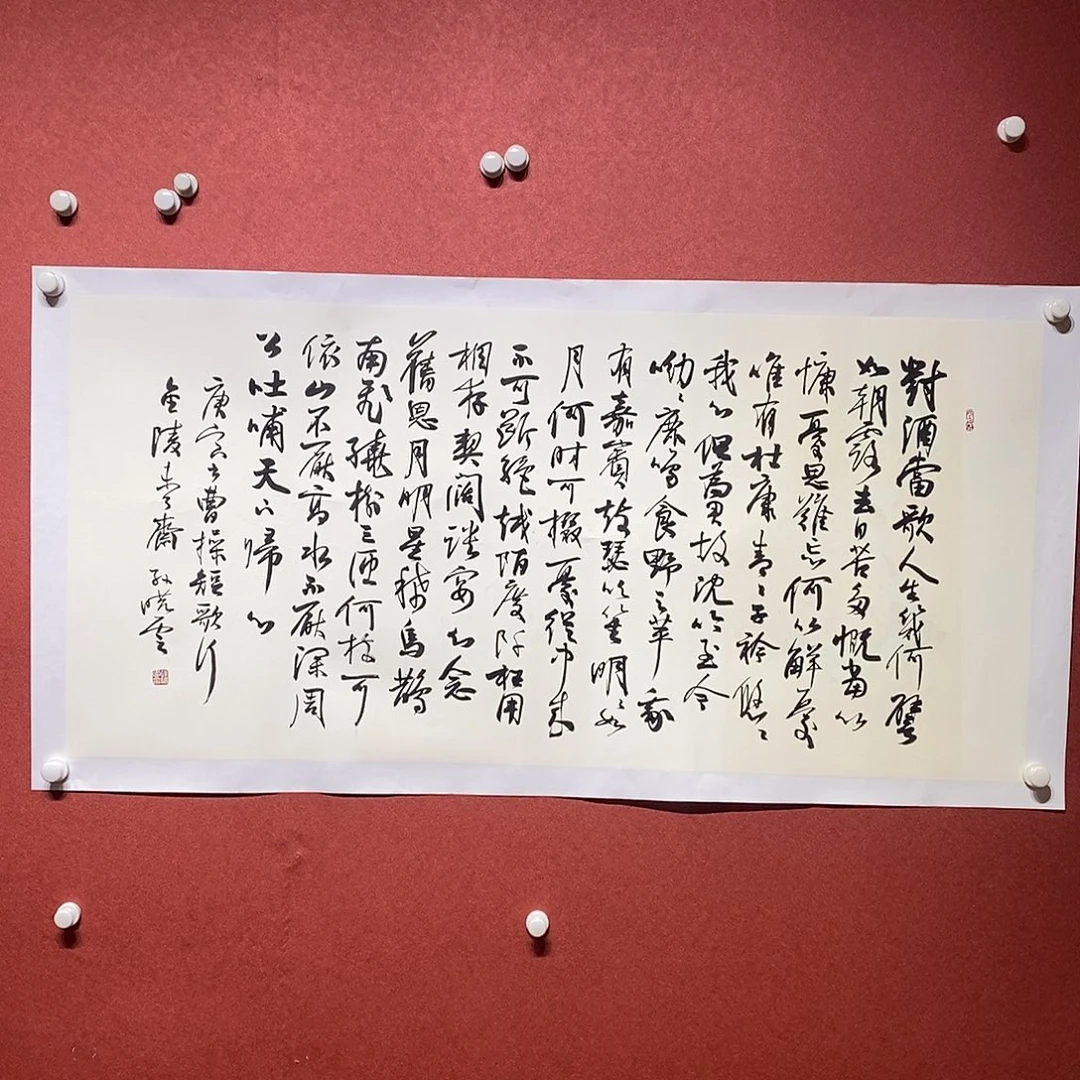 對酒當歌人生幾何譬
如朝露去日苦多慨當以
慷憂思難忘何以解憂
唯有杜康青〻子衿悠〻
我心但爲君故沈吟至今
呦〻鹿鳴食野之苹我
有嘉賓鼓瑟吹笙明〻如
月何時可掇憂從中來
不可斷絶越陌度阡枉用
相存契闊談宴心念
舊恩月明星稀烏鵲
南飛繞樹三匝何枝可
依山不厭高水不厭深周
公吐哺天下歸心
庚寅書曹操短歌行
金陵齋 孫曉雲